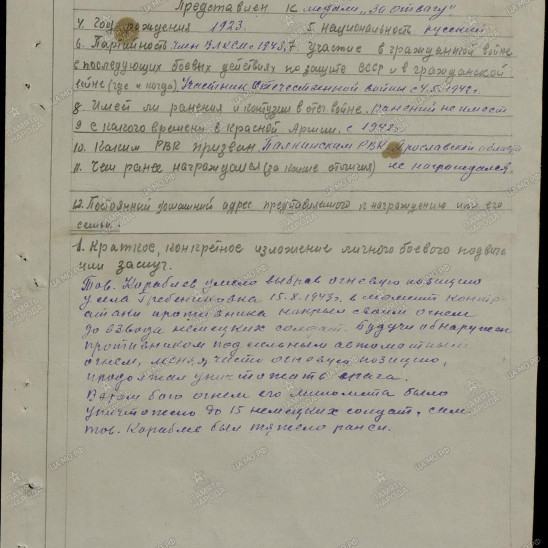 Представлен к медали „За отвагу"
4. Год рождения 1923. 5. национальность русский
6. Партийность член ВЛКСМ с 1943, 7 участие в гражданской войне
с последующих боевых действиях по защите СССР и в гражданской
войне (где и когда) Участник Отечественной войны с 4.5.1942г.
8. Имеет ли ранения и контузии в отеч войне. ранений не имеет
9 с какого времени в Красной Армии. с 1942г.
10. Каким РВК призван РВК, Ярославской области
11. Чем ранее награждался (за какие отличия) не награждался.
12. Постоянный домашний адрес представляемого к награждению или его
семьи.
1. Краткое, конкретное изложение личного боевого подвига
или заслуг.
Тов. Кораблев умело выбрав огневую позицию
у села Гребениковка 15.X.1943г. в момент контр-
атаки противника накрыл своим огнем
до взвода немецких солдат. Будучи обнаружен
противником под сильным автоматным
огнем, меняя часто огневую позицию,
продолжал уничтожать врага.
В этом бою огнем его миномета было
уничтожено до 15 немецких солдат, сам
тов. Кораблев был тяжело ранен.